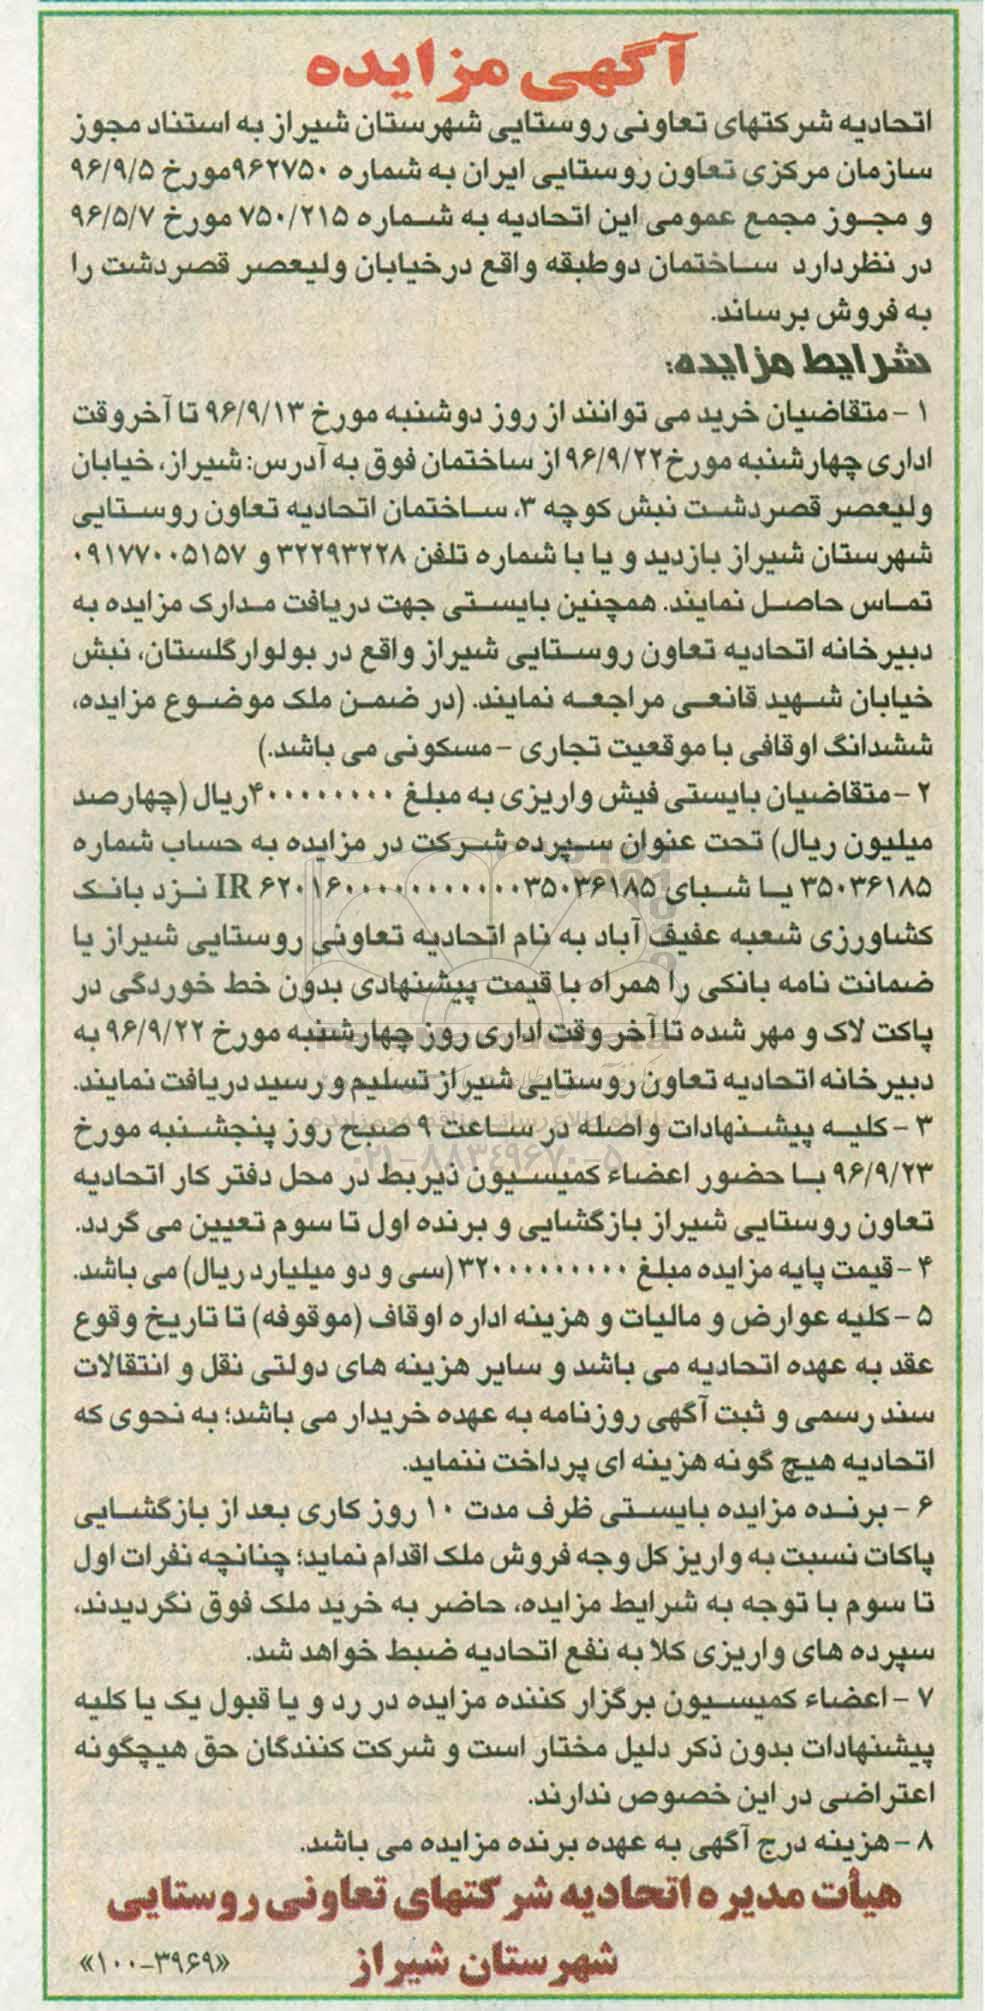 آگهی مزایده
اتحادیه شرکتهای تعاونی روستایی شهرستان شیراز به استناد مجوز
سازمان مرکزی تعاون روستایی ایران به شماره ۹۶۲۷۵۰مورخ ۹۶/۹/۵
و مجوز مجمع عمومی این اتحادیه به شماره ۷۵۰/۲۱۵ مورخ ۹۶/۵/۷
در نظردارد ساختمان دوطبقه واقع درخیابان ولیعصر قصردشت را
به فروش برساند.
شرایط مزایده:
۱ - متقاضیان خرید می توانند از روز دوشنبه مورخ ۹۶/۹/۱۳ تا آخروقت
اداری چهارشنبه مورخ۹۶/۹/۲۲ از ساختمان فوق به آدرس: شیراز، خیابان
ولیعصر قصردشت نبش کوچه ۳، ساختمان اتحادیه تعاون روستایی
شهرستان شیراز بازدید و یا با شماره تلفن ۳۲۲۹۳۲۲۸ و ۰۹۱۷۷۰۰۵۱۵۷
تماس حاصل نمایند. همچنین بایستی جهت دریافت مدارک مزایده به
دبیرخانه اتحادیه تعاون روستایی شیراز واقع در بولوارگلستان، نبش
خیابان شهید قانعی مراجعه نمایند. (در ضمن ملک موضوع مزایده،
ششدانگ اوقافی با موقعیت تجاری - مسکونی می باشد.)
۲ - متقاضیان بایستی فیش واریزی به مبلغ ۴۰۰۰۰۰۰۰۰ریال (چهارصد
میلیون ریال) تحت عنوان سپرده شرکت در مزایده به حساب شماره
۳۵۰۳۶۱۸۵ یا شبای IR ۶۲۰۱۶۰۰۰۰۰۰۰۰۰۰۰۰۳۵۰۳۶۱۸۵ نزد بانک
کشاورزی شعبه عفیف آباد به نام اتحادیه تعاونی روستایی شیراز یا
ضمانت نامه بانکی را همراه با قیمت پیشنهادی بدون خط خوردگی در
پاکت لاک و مهر شده تا آخر وقت اداری روز چهارشنبه مورخ ۹۶/۹/۲۲ به
دبیرخانه اتحادیه تعاون روستایی شیراز تسلیم و رسید دریافت نمایند.
۳ - کلیه پیشنهادات واصله در ساعت ۹ صبح روز پنجشنبه مورخ
۹۶/۹/۲۳ با حضور اعضاء کمیسیون ذیربط در محل دفتر کار اتحادیه
تعاون روستایی شیراز بازگشایی و برنده اول تا سوم تعیین می گردد.
۴ - قیمت پایه مزایده مبلغ ۳۲۰۰۰۰۰۰۰۰۰ (سی و دو میلیارد ریال) می باشد.
۵ - کلیه عوارض و مالیات و هزینه اداره اوقاف (موقوفه) تا تاریخ وقوع
عقد به عهده اتحادیه می باشد و سایر هزینه های دولتی نقل و انتقالات
سند رسمی و ثبت آگهی روزنامه به عهده خریدار می باشد؛ به نحوی که
اتحادیه هیچ گونه هزینه ای پرداخت ننماید.
۶ - برنده مزایده بایستی ظرف مدت ۱۰ روز کاری بعد از بازگشایی
پاکات نسبت به واریز کل وجه فروش ملک اقدام نماید؛ چنانچه نفرات اول
تا سوم با توجه به شرایط مزایده، حاضر به خرید ملک فوق نگردیدند،
سپرده های واریزی کلا به نفع اتحادیه ضبط خواهد شد.
۷ - اعضاء کمیسیون برگزار کننده مزایده در رد و یا قبول یک یا کلیه
پیشنهادات بدون ذکر دلیل مختار است و شرکت کنندگان حق هیچگونه
اعتراضی در این خصوص ندارند.
۸ - هزینه درج آگهی به عهده برنده مزایده می باشد.
هیأت مدیره اتحادیه شرکتهای تعاونی روستایی
شهرستان شیراز
«۱۰۰-۳۹۶۹»
۰۲۱-۸۸۳۴۹۶۷۰-۵